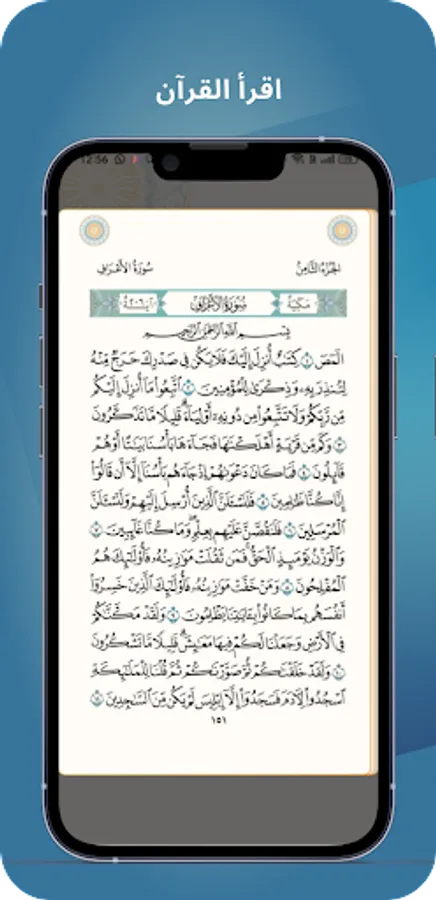 اقرأ القرآن
12:56
سُورَةُ الأَعْرَافِ
الجُزْءُ الثَّامِنُ
مَكِّيَّة سُورَةُ الأَعْرَافِ آيَاتُهَا ٢٠٦
بِسْمِ ٱللَّهِ ٱلرَّحْمَٰنِ ٱلرَّحِيمِ
الٓمٓصٓ ١ كِتَٰبٌ أُنزِلَ إِلَيْكَ فَلَا يَكُن فِي صَدْرِكَ حَرَجٌ مِّنْهُ
لِتُنذِرَ بِهِۦ وَذِكْرَىٰ لِلْمُؤْمِنِينَ ٢ ٱتَّبِعُوا۟ مَآ أُنزِلَ إِلَيْكُم
مِّن رَّبِّكُمْ وَلَا تَتَّبِعُوا۟ مِن دُونِهِۦٓ أَوْلِيَآءَ ۗ قَلِيلًا مَّا تَذَكَّرُونَ
٣ وَكَم مِّن قَرْيَةٍ أَهْلَكْنَٰهَا فَجَآءَهَا بَأْسُنَا بَيَٰتًا أَوْ هُمْ
قَآئِلُونَ ٤ فَمَا كَانَ دَعْوَىٰهُمْ إِذْ جَآءَهُم بَأْسُنَآ إِلَّآ أَن قَالُوٓا۟
إِنَّا كُنَّا ظَٰلِمِينَ ٥ فَلَنَسْـَٔلَنَّ ٱلَّذِينَ أُرْسِلَ إِلَيْهِمْ وَلَنَسْـَٔلَنَّ
ٱلْمُرْسَلِينَ ٦ فَلَنَقُصَّنَّ عَلَيْهِم بِعِلْمٍ ۖ وَمَا كُنَّا غَآئِبِينَ ٧
وَٱلْوَزْنُ يَوْمَئِذٍ ٱلْحَقُّ ۚ فَمَن ثَقُلَتْ مَوَٰزِينُهُۥ فَأُو۟لَٰٓئِكَ هُمُ
ٱلْمُفْلِحُونَ ٨ وَمَنْ خَفَّتْ مَوَٰزِينُهُۥ فَأُو۟لَٰٓئِكَ ٱلَّذِينَ خَسِرُوٓا۟
أَنفُسَهُم بِمَا كَانُوا۟ بِـَٔايَٰتِنَا يَظْلِمُونَ ٩ وَلَقَدْ مَكَّنَّٰكُمْ
فِي ٱلْأَرْضِ وَجَعَلْنَا لَكُمْ فِيهَا مَعَٰيِشَ ۗ قَلِيلًا مَّا تَشْكُرُونَ
١٠ وَلَقَدْ خَلَقْنَٰكُمْ ثُمَّ صَوَّرْنَٰكُمْ ثُمَّ قُلْنَا لِلْمَلَٰٓئِكَةِ
ٱسْجُدُوا۟ لِـَٔادَمَ فَسَجَدُوٓا۟ إِلَّآ إِبْلِيسَ لَمْ يَكُن مِّنَ ٱلسَّٰجِدِينَ ١١
١٥١